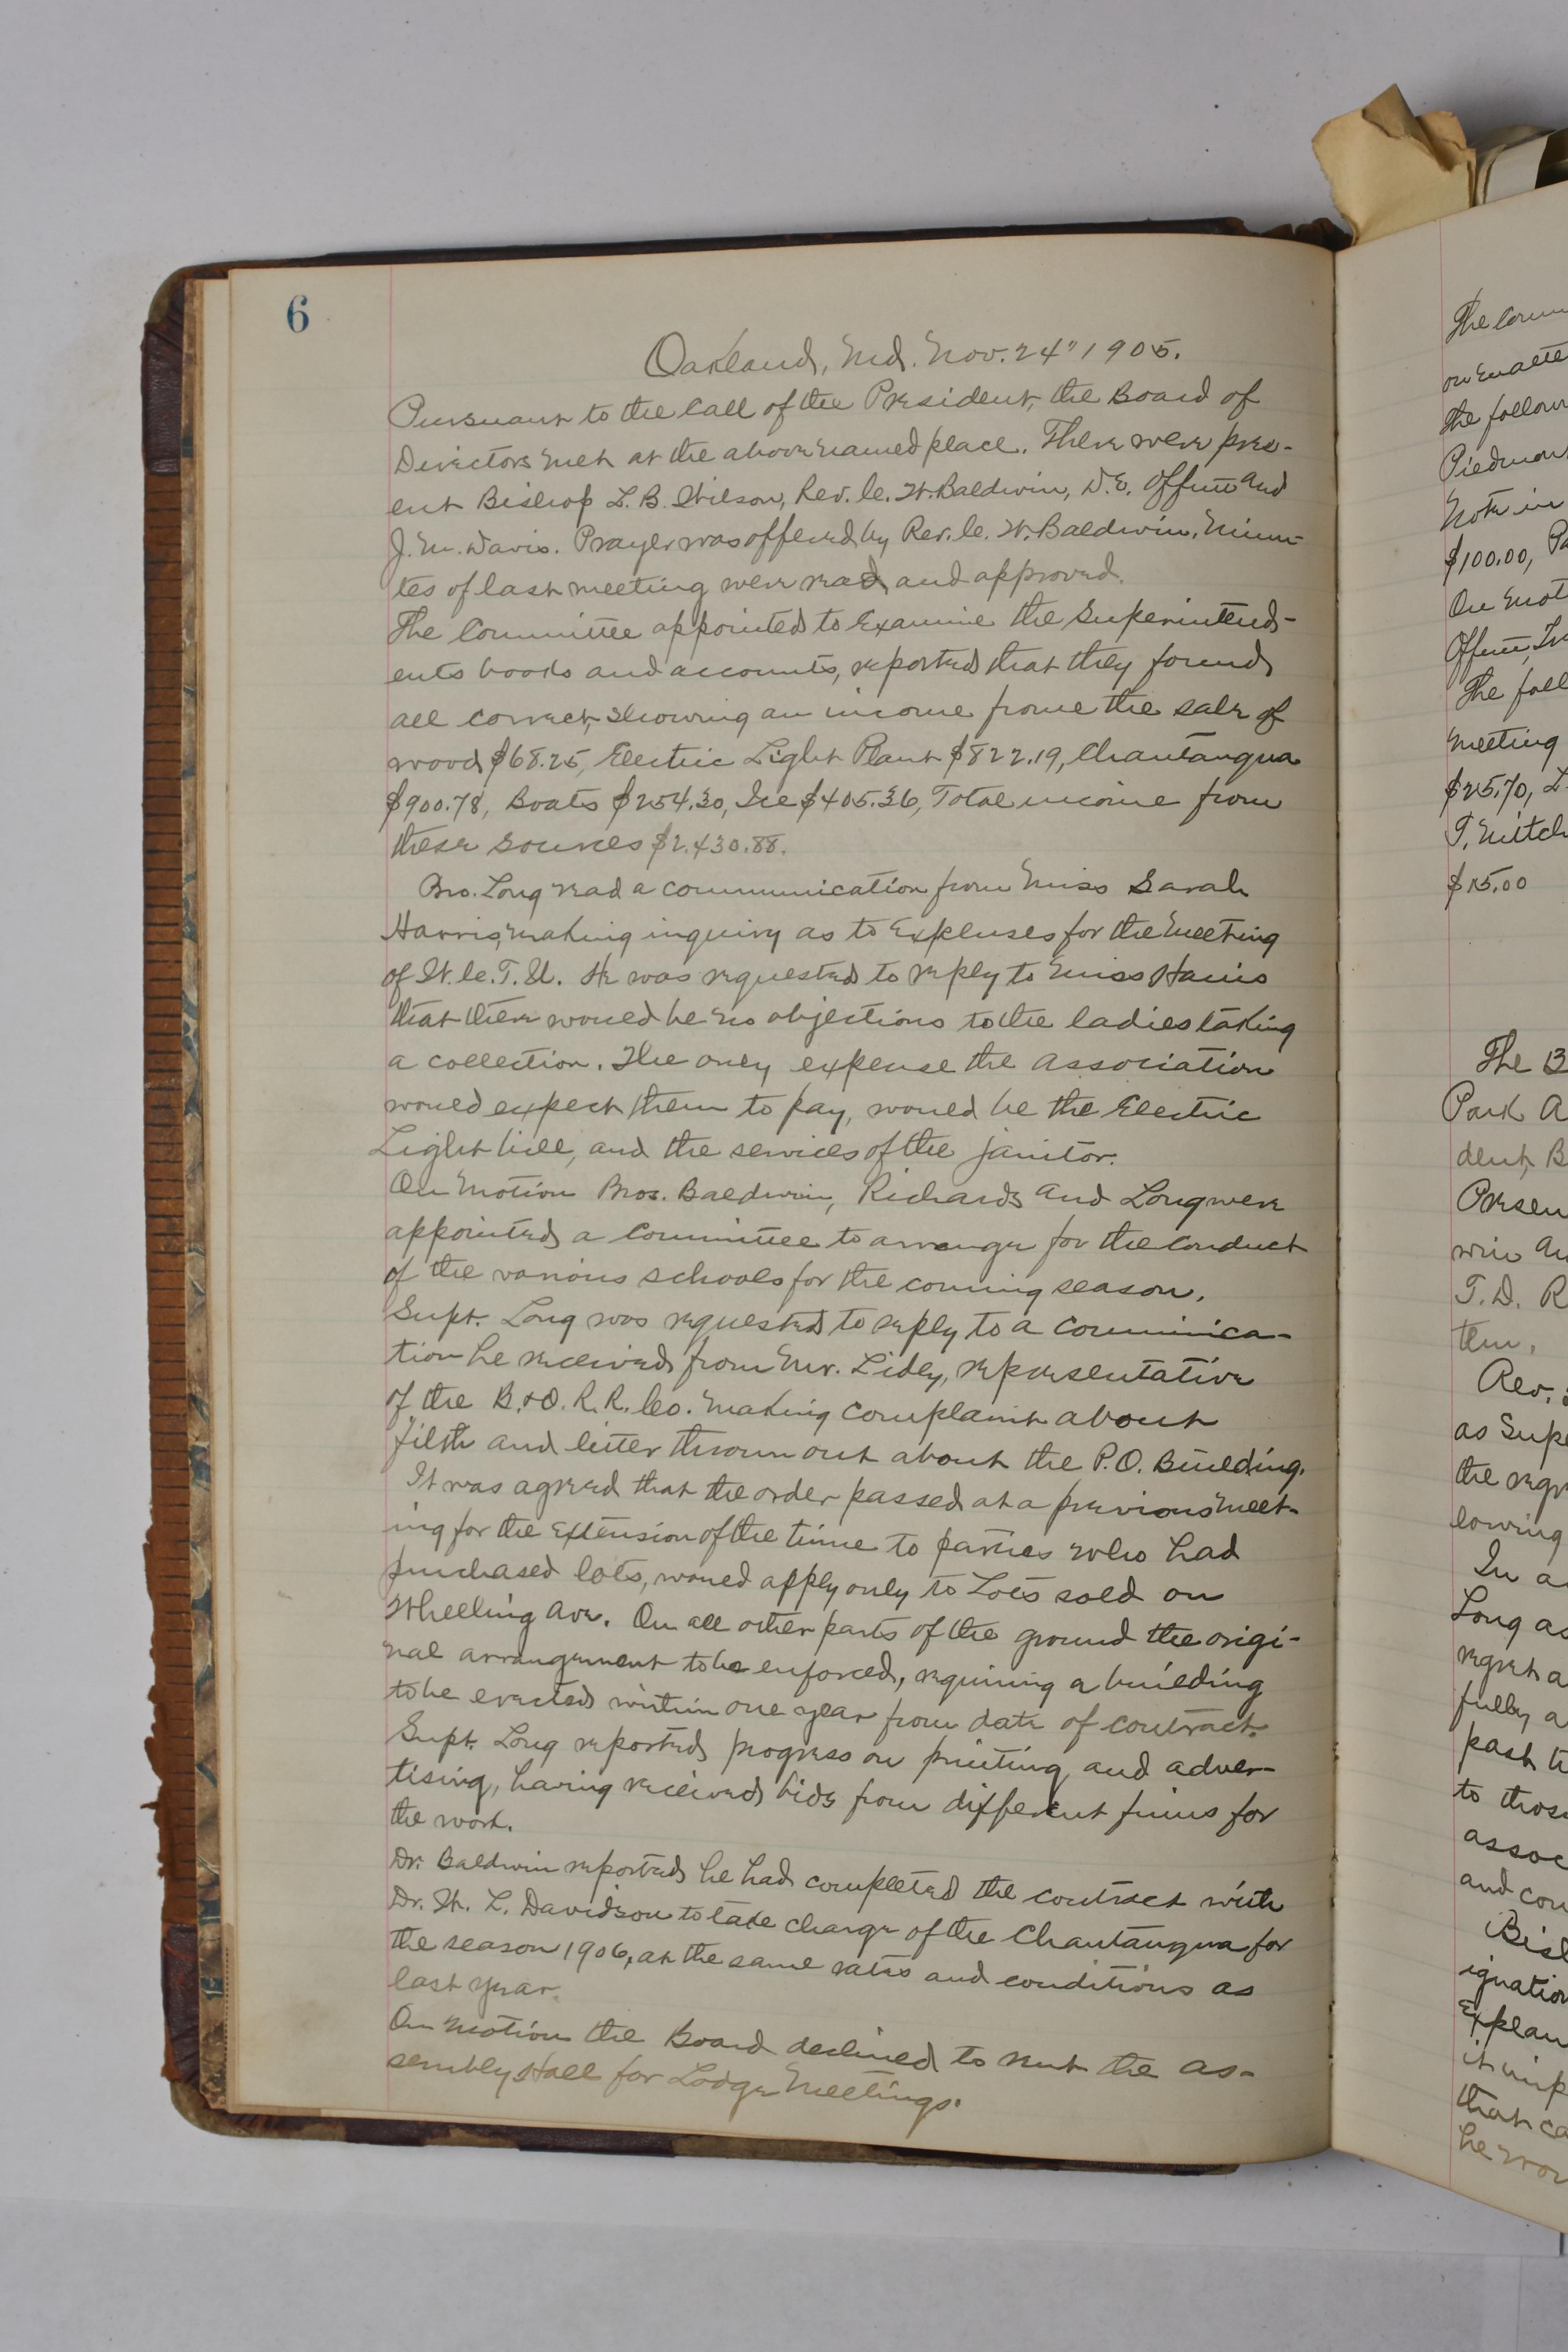 6
Oakland, Md. Nov. 24" 1905.
Pursuant to the Call of the President, the Board of
Directors met at the above named place. There were pres-
ent Bishop L. B. Wilson, Rev. C. W. Baldwin, D. E. Offutt and
J. M. Davis. Prayer was offered by Rev. C. W. Baldwin. Minu-
tes of last meeting were read and approved.
The Committee appointed to Examine the Superintend-
ents books and accounts, reported that they found
all correct, showing an income frome the sale of
wood $68.25, Electric Light Plant $822.19, Chautauqua
$900.78, Boats $254.30, Ice $405.36, Total income from
these sources $2.430.88.
Bro. Long read a communication from Miss Sarah
Harris, making inquiry as to Expenses for the meeting
of W. C. T. U. He was requested to reply to Miss Harris
that there would be no objections to the ladies taking
a collection. The only expense the association
would expect them to pay, would be the Electric
Light bill, and the services of the janitor.
On Motion Bros. Baldwin, Richards and Long were
appointed a Committee to arrange for the Conduct
of the various schools for the coming season.
Supt. Long was requested to reply to a communica-
tion he received from Mr. Lidey, representative
of the B. & O. R. R. Co. making complaint about
filth and litter thrown out about the P.O. Building.
It was agreed that the order passed at a previous meet-
ing for the Extension of the time to parties who had
purchased lots, would apply only to Lots sold on
Wheeling Ave. On all other parts of the ground the origi-
nal arrangement to be enforced, requiring a building
to be erected within one year from date of contract.
Supt. Long reported progress on printing and adver-
tising, having received bids from different firms for
the work.
Dr. Baldwin reported he had completed the contract with
Dr. W. L. Davidson to take charge of the Chautauqua for
the season 1906, at the same rates and conditions as
last year.
On motion the Board declined to rent the as-
sembly Hall for Lodge Meetings.
The
the follow
Piedmon
Note in
$100.00, Pa
On Mot
Offutt,
The foll
Meeting
$25.70, L
T. Mitch
$15.00
The B
Park A
dent, B
Presen
win an
T. D. R
ten.
Rev.
as Supe
the regr
lowing
In a
Long as
regret a
fully a
past
to thos
assoc
and con
Bis
ignation
Explan
it imp
that ca
he wou